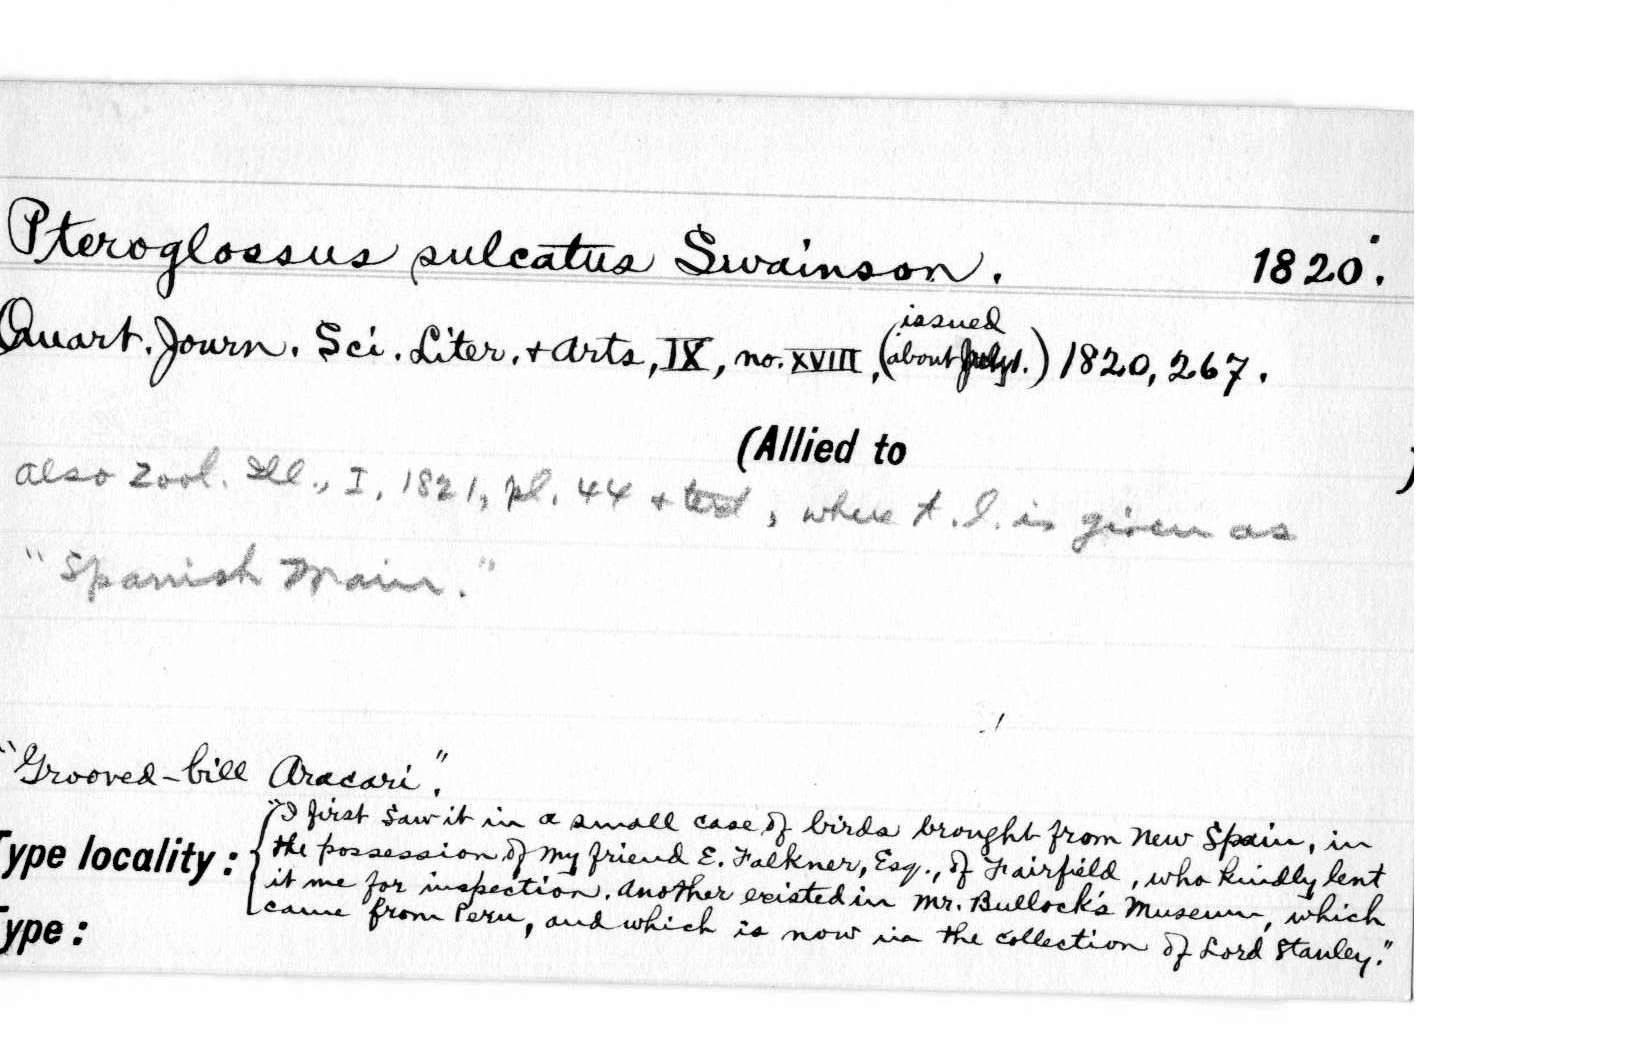 Pteroglossus sulcatus Swainson. 1820.
Quart. Journ. Sci. Liter. + Arts, IX, no. XVIII, (issued about July 1.) 1820, 267.
(Allied to )
also Zool. Ill., I, 1821, pl. 44 + text, where t. l. is given as
"Spanish Main."
"Grooved-bill Aracari".
"I first saw it in a small case of birds brought from New Spain, in
ype locality: the possession of my friend E. Falkner, Esq., of Fairfield, who kindly lent
it me for inspection. Another existed in Mr. Bullock's Museum, which
ype: came from Peru, and which is now in the collection of Lord Stanley."